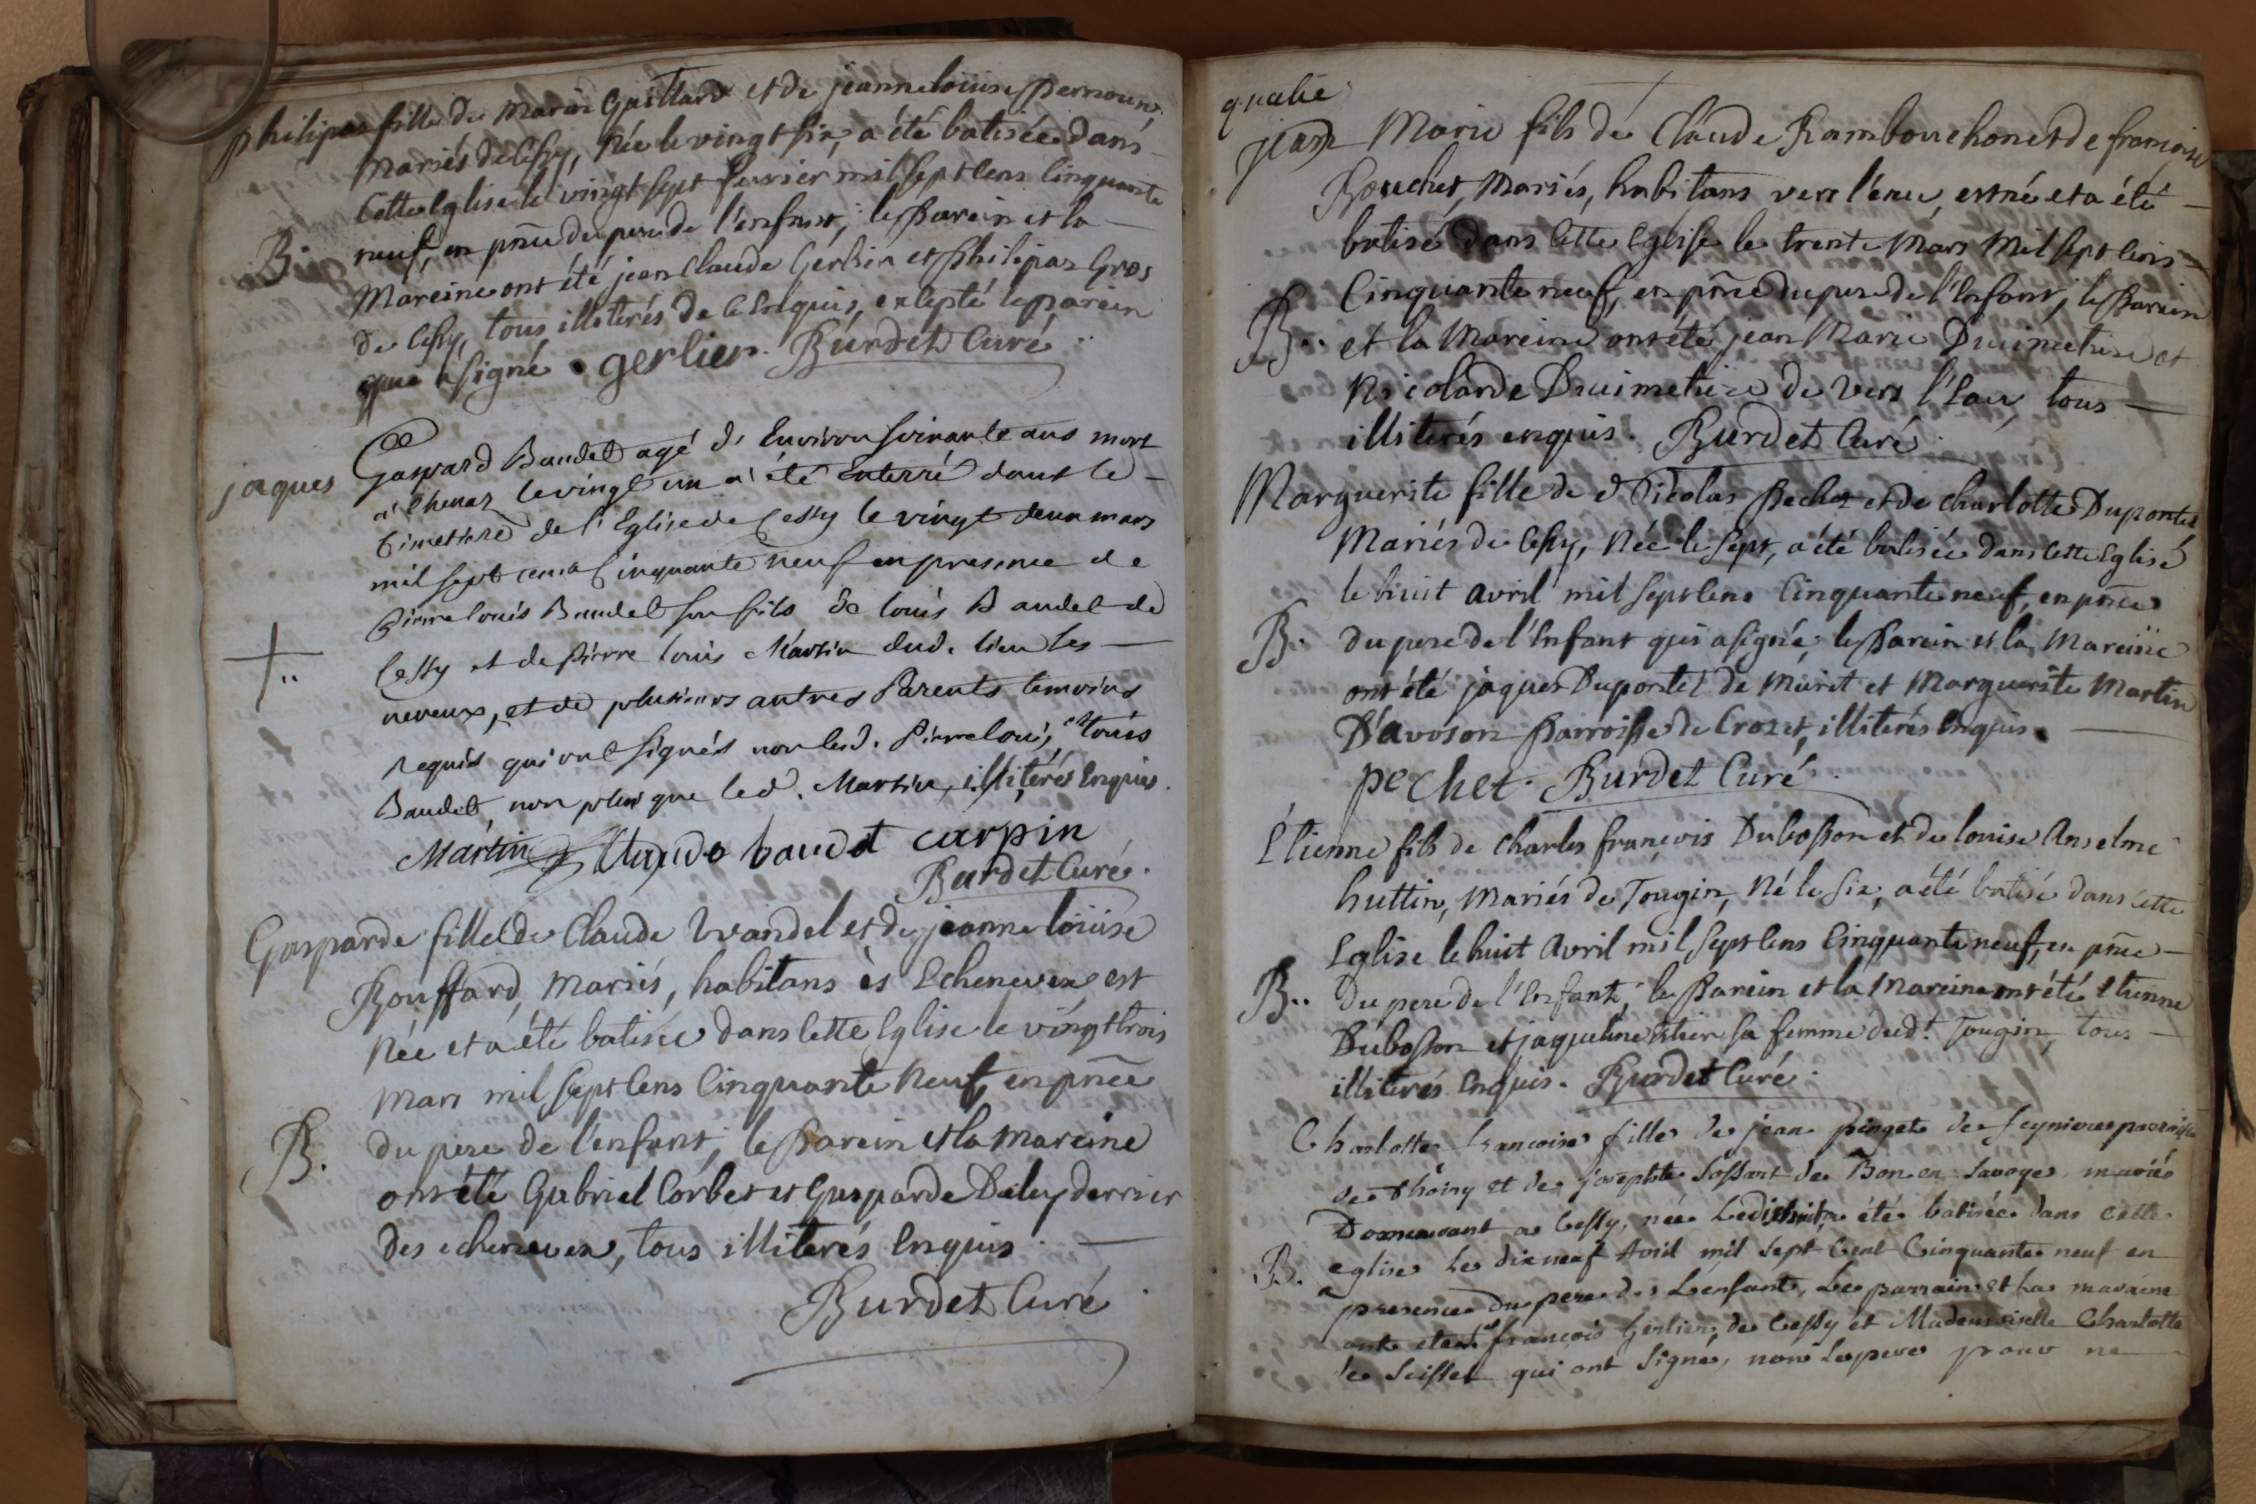 philipaz fille de Marin Gaillard et de jeanne louise Pernoux
Mariés de Cessy, Née le vingt six, a été batisée dans
Cette Eglise le vingt sept fevrier mil sept Cens Cinquante
neuf, en pñce du pere de l'enfant; le Parein et la
B.
Mareine ont été jean Claude Gerlier et philipaz Gros
de Cessy, tous illiterés de Ce Enquis, excepté le parein
qui a signé. gerlier. Burdet Curé
jaques
Gaspard Baudet agé d'Environ soixante ans mort
a Chenaz le vingt un a été Enterré dans le
Cimettiere de l'Eglise de Cessy le vingt deux mars
mil sept cens Cinquante neuf en presence de
Pierre louis Baudet son fils de louis Baudet de
Cessy et de Pierre louis Martin dud. lieu ses
neveux, et de plusieurs autres Parents temoins
requis qui ont signés non led. Pierre louis, et louis
Baudet, non plus que led. Martin, illiterés Enquis.
Martin Claude baudet carpin
Burdet Curé.
Gasparde fille de Claude Vvandel et de jeanne loüise
Bouffard, Mariés, habitans ès Echenevex est
Née et a été batisée dans Cette Eglise le vingt trois
Mars mil sept Cens Cinquante Neuf, en pñce
B.
du pere de l'enfant; le Parein et la Mareine
ont été Gabriel Corbet et Gasparde Daley derrier
des echenevex, tous illiterés Enquis.
Burdet Curé
jean Marie fils de Claude Rambouchon et de françoise
Bouchet, Mariés, habitans vers l'eau, est né et a été
batisé dans Cette Eglise le trente Mars Mil sept Cens
Cinquante neuf, en pñce du pere de l'Enfant; le Parein
B..
et la Mareine ont été jean Marie Duimetiere et
Nicolarde Duimetiere de Vers l'Eau, tous
illiterés enquis. Burdet Curé.
Marguerite fille de Nicolas Pechet et de Charlotte Dupontet
Mariés de Cessy, Née le sept, a été batisée dans Cette Eglise
le huit avril mil sept Cens Cinquante neuf, en pñce
B.
du pere de l'Enfant qui a signé; le Parein et la Mareine
ont été jaques Dupontet de Muret et Marguerite Martin
D'avoson Parroisse de Crozet, illiterés Enquis.
pechet. Burdet Curé.
Etienne fils de Charles françois Dubosson et de louise Anselme
huttin, Mariés de Tougin, Né le six, a été batisé dans Cette
Eglise le huit Avril mil sept Cens Cinquante neuf, en pñce
B..
du pere de l'Enfant; le Parein et la Mareine ont été Etienne
Dubosson et jaqueline sa femme dud.t Tougin, tous
illiterés Enquis. Burdet Curé.
Charlotte francoise fille de jean pinget de feynieres parroisse
de thoiry et de josephte sossant de Bon en Savoye mariés
Demeurant a Cessy, née Le dixhuit a été batisée Dans Cette
B.
eglise Le dix neuf Avril mil sept Cent Cinquante neuf en
presence Du pere de Lenfant, Le parrain et La maraine
ont étés françois Gerlier de Cessy et Mademoiselle Charlotte
de Seissel qui ont Signé, non Le pere pour ne